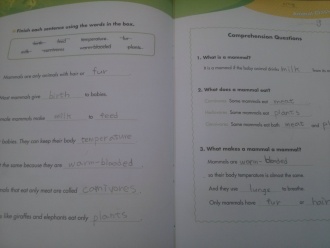 Finish each sentence using the words in the box.
birth feed temperature fur
milk carnivores warm-blooded plants
Mammals are only animals with hair or fur
give birth to babies.
make milk to feed
babies. They can keep their body temperature
the same because they are warm-blooded
that eat only meat are called carnivores
like giraffes and elephants eat only plants
Comprehension Questions
1. What is a mammal?
It is a mammal if the baby animal drinks milk from its
2. What does a mammal eat?
Some mammals eat meat
Some mammals eat plants
Some mammals eat both meat and pl
3. What makes a mammal a mammal?
Mammals are warm-blooded
so their body temperature is almost the same.
And they use lungs to breathe.
Only mammals have fur or hair